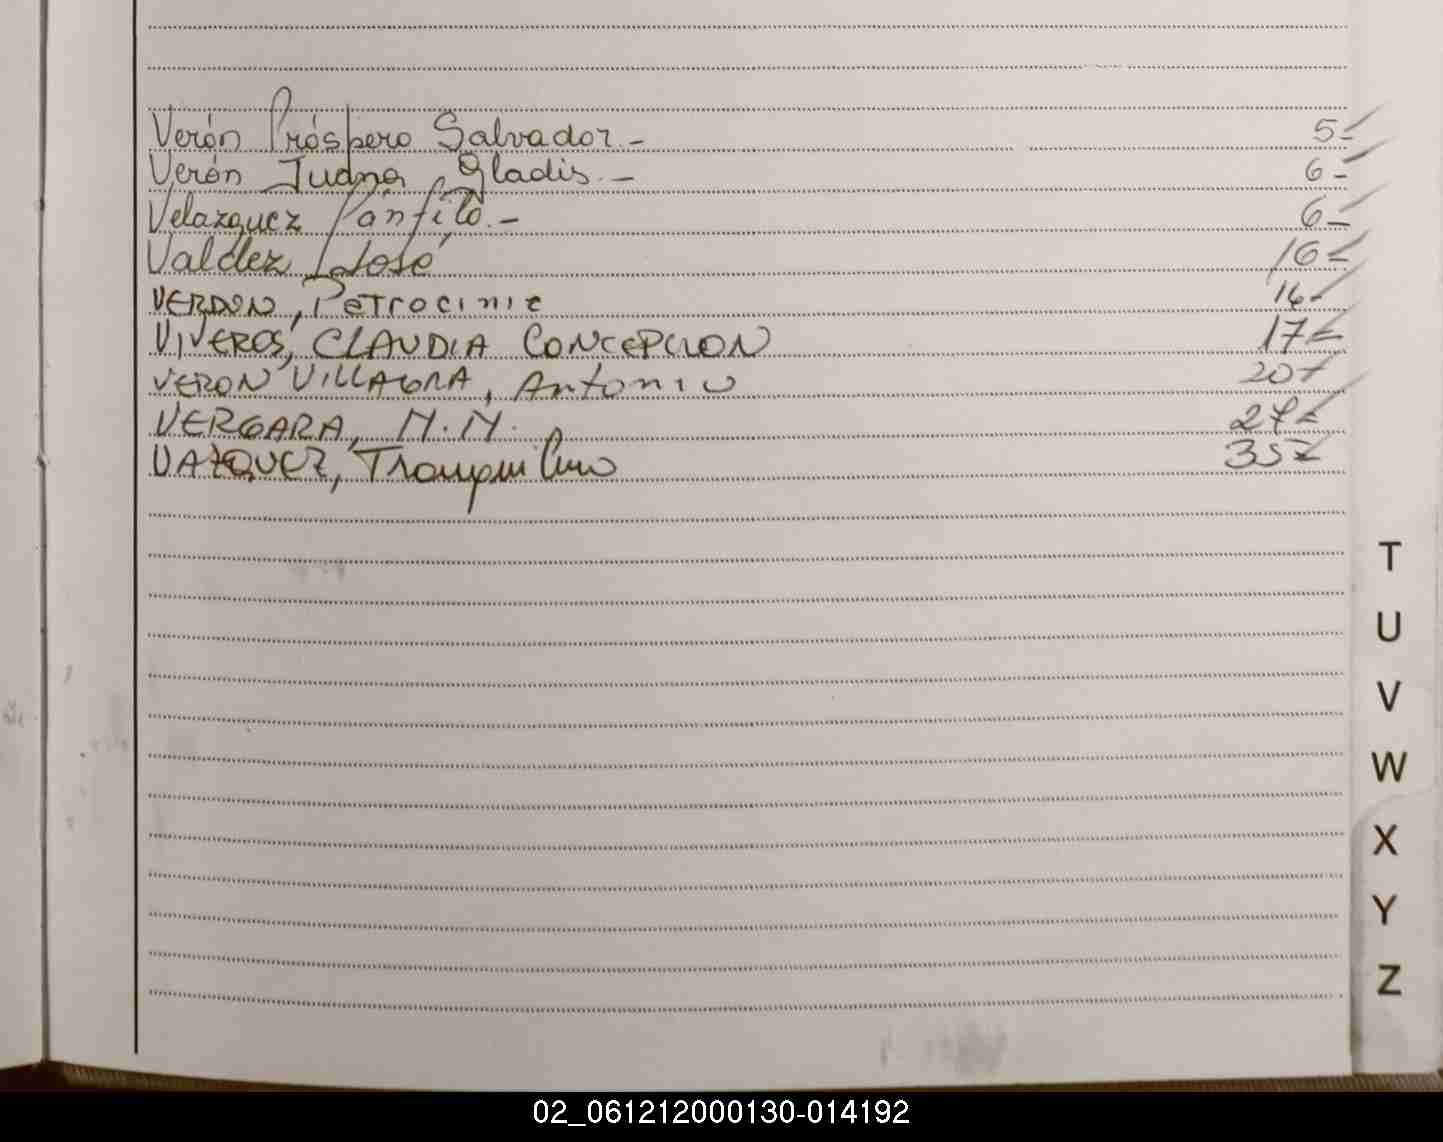 Verón Próspero Salvador.- 5-
Verón Juana Gladis.- 6-
Velazquez Pánfilo.- 6-
Valdez José 16-
VERDUN, Petrocinie 16-
VIVEROS, CLAUDIA CONCEPCION 17-
VERON VILLAGRA, Antonio 20-
VERGARA, N.N. 27-
VAZQUEZ, Tranquilino 35-
T
U
V
W
X
Y
Z
02_061212000130-014192